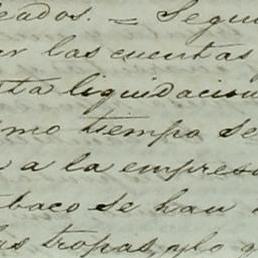 eados. = Segui
er las cuentas
ta liquidacion
mo tiempo se
a la empresa
tabaco se han
las tropas, y lo q